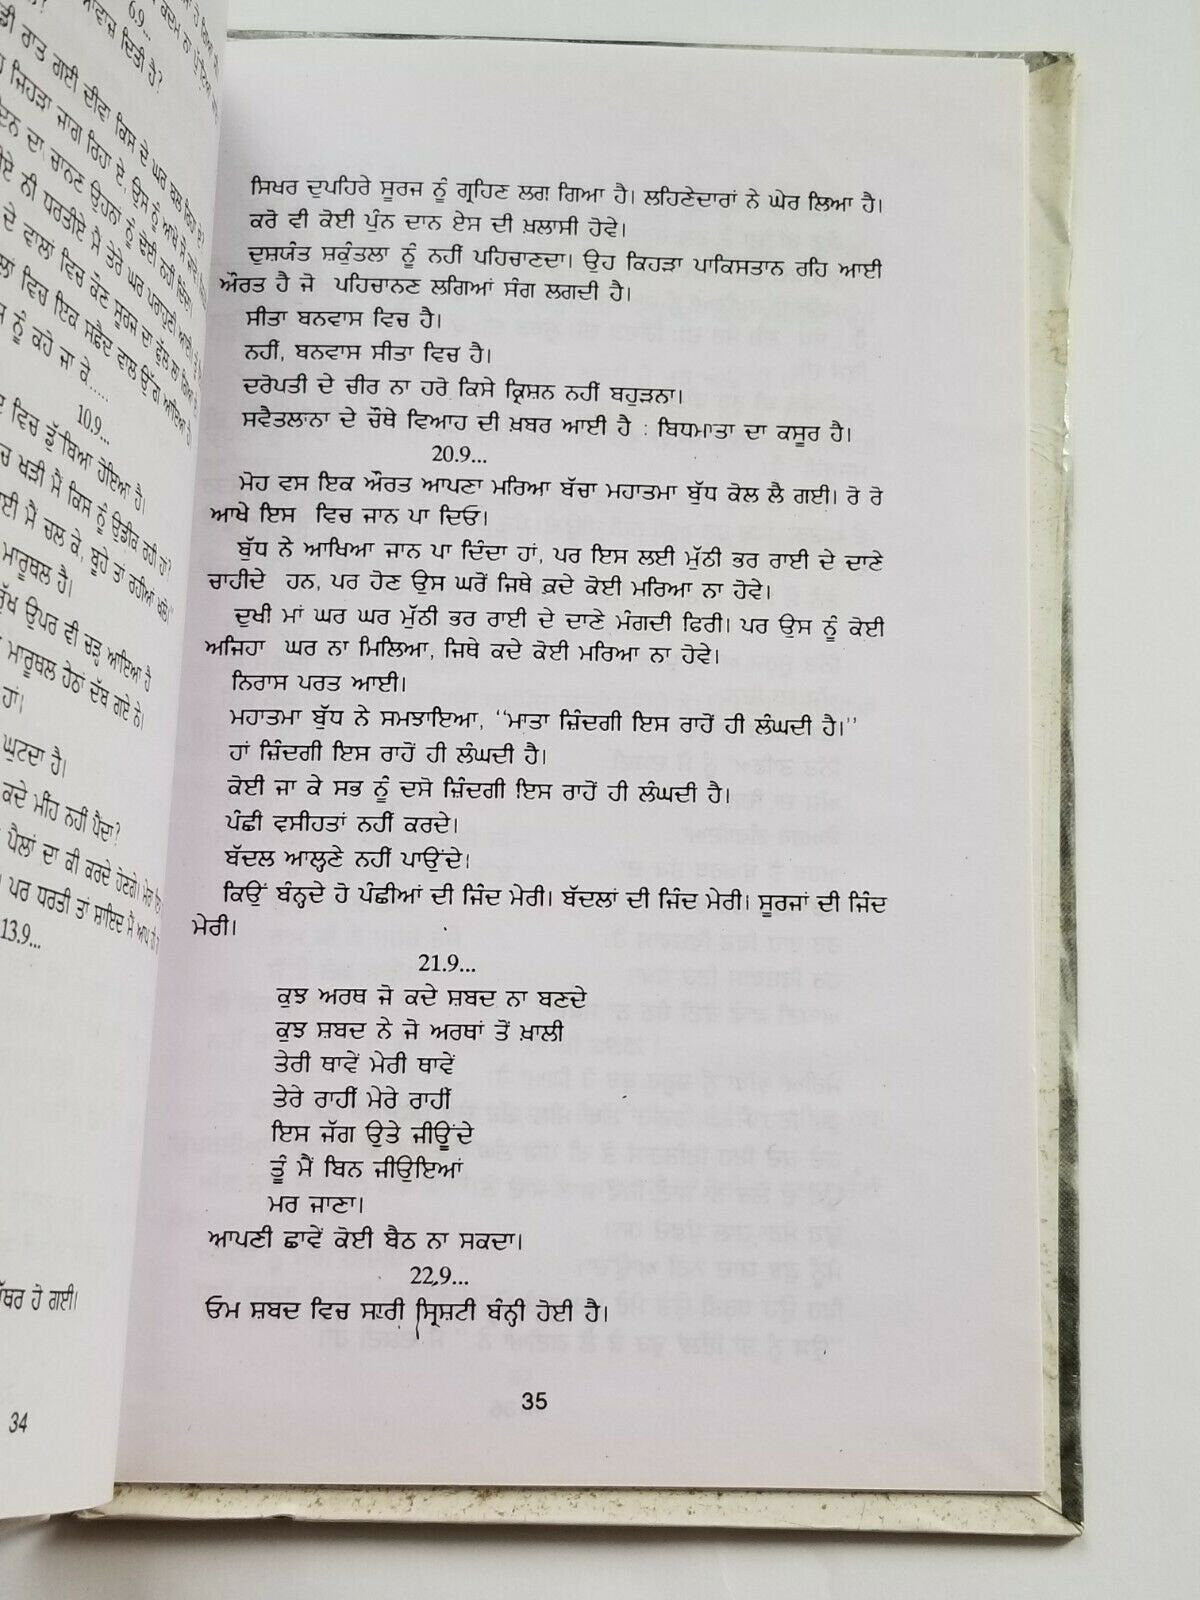 ਆਵਾਜ਼ ਦਿਤੀ ਹੈ?
6.9...
ਰਾਤ ਗਈ ਦੀਵਾ ਕਿਸ ਦੇ ਘਰ ਬਲ ਰਿਹਾ ਏ?
ਜਿਹੜਾ ਜਾਗ ਰਿਹਾ ਏ, ਉਸ ਨੂੰ ਆਖੋ ਸੌਂ ਜਾਵੇ।
ਦਾ ਚਾਨਣ ਉਹਨਾਂ ਨੂੰ ਢੋਈ ਨਹੀਂ ਦਿੰਦਾ।
ਨੀ ਧਰਤੀਏ ਮੈਂ ਤੇਰੇ ਘਰ ਪਰਾਹੁਣੀ ਆਈ।
ਦੇ ਵਾਲਾਂ ਵਿਚ ਕੌਣ ਸੂਰਜ ਦਾ ਫੁੱਲ ਲਾ ਗਿਆ ਹੈ
ਵਿਚ ਇਕ ਸਫੈਦ ਵਾਲ ਉੱਗ ਆਇਆ ਹੈ।
ਨੂੰ ਕਹੋ ਜਾ ਕੇ.....
10.9...
ਵਿਚ ਡੁੱਬਿਆ ਹੋਇਆ ਹੈ।
ਖੜੀ ਮੈਂ ਕਿਸ ਨੂੰ ਉਡੀਕ ਰਹੀ ਹਾਂ?
ਮੈਂ ਚਲ ਕੇ, ਬੂਹੇ ਤਾਂ ਰਹੀਆਂ
ਮਾਰੂਥਲ ਹੈ।
ਉਪਰ ਵੀ ਚੜ੍ਹ ਆਇਆ ਹੈ
ਮਾਰੂਥਲ ਹੇਠਾਂ ਦੱਬ ਗਏ ਨੇ।
ਹਾਂ।
ਘੁਟਦਾ ਹੈ।
ਕਦੇ ਮੀਂਹ ਨਹੀਂ ਪੈਂਦਾ?
ਪੈਲਾਂ ਦਾ ਕੀ ਕਰਦੇ ਹੋਣਗੇ। ਮੇਰਾ
ਪਰ ਧਰਤੀ ਤਾਂ ਸ਼ਾਇਦ ਮੈਂ ਆਪ
13.9...
ਹੋ ਗਈ।
34
ਸਿਖਰ ਦੁਪਹਿਰੇ ਸੂਰਜ ਨੂੰ ਗ੍ਰਹਿਣ ਲਗ ਗਿਆ ਹੈ। ਲਹਿਣੇਦਾਰਾਂ ਨੇ ਘੇਰ ਲਿਆ ਹੈ।
ਕਰੋ ਵੀ ਕੋਈ ਪੁੰਨ ਦਾਨ ਏਸ ਦੀ ਖ਼ਲਾਸੀ ਹੋਵੇ।
ਦੁਸ਼ਯੰਤ ਸ਼ਕੁੰਤਲਾ ਨੂੰ ਨਹੀਂ ਪਹਿਚਾਣਦਾ। ਉਹ ਕਿਹੜਾ ਪਾਕਿਸਤਾਨ ਰਹਿ ਆਈ
ਔਰਤ ਹੈ ਜੋ ਪਹਿਚਾਨਣ ਲਗਿਆਂ ਸੰਗ ਲਗਦੀ ਹੈ।
ਸੀਤਾ ਬਨਵਾਸ ਵਿਚ ਹੈ।
ਨਹੀਂ, ਬਨਵਾਸ ਸੀਤਾ ਵਿਚ ਹੈ।
ਦਰੋਪਤੀ ਦੇ ਚੀਰ ਨਾ ਹਰੋ ਕਿਸੇ ਕ੍ਰਿਸ਼ਨ ਨਹੀਂ ਬਹੁੜਨਾ।
ਸਵੈਤਲਾਨਾ ਦੇ ਚੌਥੇ ਵਿਆਹ ਦੀ ਖ਼ਬਰ ਆਈ ਹੈ : ਬਿਧਮਾਤਾ ਦਾ ਕਸੂਰ ਹੈ।
20.9...
ਮੋਹ ਵਸ ਇਕ ਔਰਤ ਆਪਣਾ ਮਰਿਆ ਬੱਚਾ ਮਹਾਤਮਾ ਬੁੱਧ ਕੋਲ ਲੈ ਗਈ। ਰੋ ਰੋ
ਆਖੇ ਇਸ ਵਿਚ ਜਾਨ ਪਾ ਦਿਓ।
ਬੁੱਧ ਨੇ ਆਖਿਆ ਜਾਨ ਪਾ ਦਿੰਦਾ ਹਾਂ, ਪਰ ਇਸ ਲਈ ਮੁੱਠੀ ਭਰ ਰਾਈ ਦੇ ਦਾਣੇ
ਚਾਹੀਦੇ ਹਨ, ਪਰ ਹੋਣ ਉਸ ਘਰੋਂ ਜਿਥੇ ਕਦੇ ਕੋਈ ਮਰਿਆ ਨਾ ਹੋਵੇ।
ਦੁਖੀ ਮਾਂ ਘਰ ਘਰ ਮੁੱਠੀ ਭਰ ਰਾਈ ਦੇ ਦਾਣੇ ਮੰਗਦੀ ਫਿਰੀ। ਪਰ ਉਸ ਨੂੰ ਕੋਈ
ਅਜਿਹਾ ਘਰ ਨਾ ਮਿਲਿਆ, ਜਿਥੇ ਕਦੇ ਕੋਈ ਮਰਿਆ ਨਾ ਹੋਵੇ।
ਨਿਰਾਸ ਪਰਤ ਆਈ।
ਮਹਾਤਮਾ ਬੁੱਧ ਨੇ ਸਮਝਾਇਆ, “ਮਾਤਾ ਜ਼ਿੰਦਗੀ ਇਸ ਰਾਹੋਂ ਹੀ ਲੰਘਦੀ ਹੈ।”
ਹਾਂ ਜ਼ਿੰਦਗੀ ਇਸ ਰਾਹੋਂ ਹੀ ਲੰਘਦੀ ਹੈ।
ਕੋਈ ਜਾ ਕੇ ਸਭ ਨੂੰ ਦਸੋ ਜ਼ਿੰਦਗੀ ਇਸ ਰਾਹੋਂ ਹੀ ਲੰਘਦੀ ਹੈ।
ਪੰਛੀ ਵਸੀਹਤਾਂ ਨਹੀਂ ਕਰਦੇ।
ਬੱਦਲ ਆਲ੍ਹਣੇ ਨਹੀਂ ਪਾਉਂਦੇ।
ਕਿਉਂ ਬੰਨ੍ਹਦੇ ਹੋ ਪੰਛੀਆਂ ਦੀ ਜਿੰਦ ਮੇਰੀ। ਬੱਦਲਾਂ ਦੀ ਜਿੰਦ ਮੇਰੀ। ਸੂਰਜਾਂ ਦੀ ਜਿੰਦ
ਮੇਰੀ।
21.9...
ਕੁਝ ਅਰਥ ਜੋ ਕਦੇ ਸ਼ਬਦ ਨਾ ਬਣਦੇ
ਕੁਝ ਸ਼ਬਦ ਨੇ ਜੋ ਅਰਥਾਂ ਤੋਂ ਖ਼ਾਲੀ
ਤੇਰੀ ਥਾਵੇਂ ਮੇਰੀ ਥਾਵੇਂ
ਤੇਰੇ ਰਾਹੀਂ ਮੇਰੇ ਰਾਹੀਂ
ਇਸ ਜੱਗ ਉਤੇ ਜੀਊਂਦੇ
ਤੂੰ ਮੈਂ ਬਿਨ ਜੀਉਇਆਂ
ਮਰ ਜਾਣਾ।
ਆਪਣੀ ਛਾਵੇਂ ਕੋਈ ਬੈਠ ਨਾ ਸਕਦਾ।
22.9...
ਓਮ ਸ਼ਬਦ ਵਿਚ ਸਾਰੀ ਸ੍ਰਿਸ਼ਟੀ ਬੰਨ੍ਹੀ ਹੋਈ ਹੈ।
35